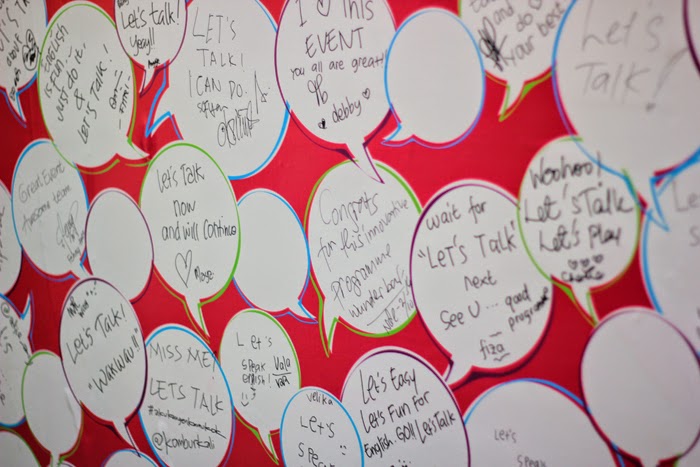 about
English
is fun,
Just do it.
&
Let's Talk!
Let's talk!
Yeay!!
LET'S
TALK!
I CAN DO.
I ♡ this
EVENT
you all are great!
♡ debby ♡
and do
your best
Let's
Talk!
Great Event
Awesome team
Let's Talk
now
and will continue
♡ Moye
Congrats
for this innovative
Programme
wait for
"LET'S TALK"
next
See U... good
programme
fiza
Woohoo!
Let's Talk
Let's Play
♡♡♡
Let's Talk!
"WAWAW!!"
MISS ME!
LETS TALK
@komburkali
Let's
Speak
English!
velika
Let's
Speak
Let's Easy
Let's Fun For
English GO!! Let's Talk
Let's
Speak